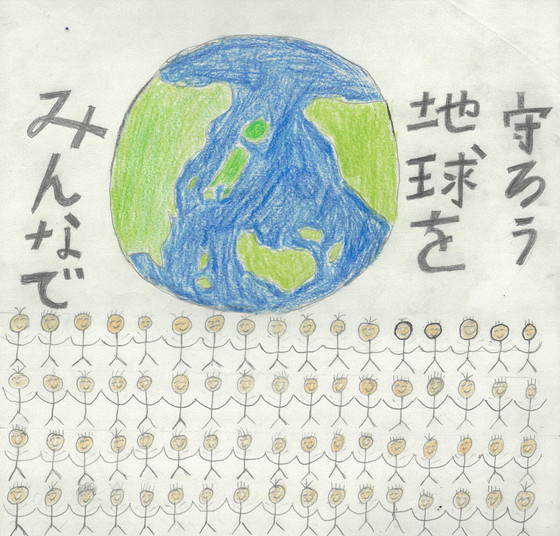 守ろう
地球を
みんなで